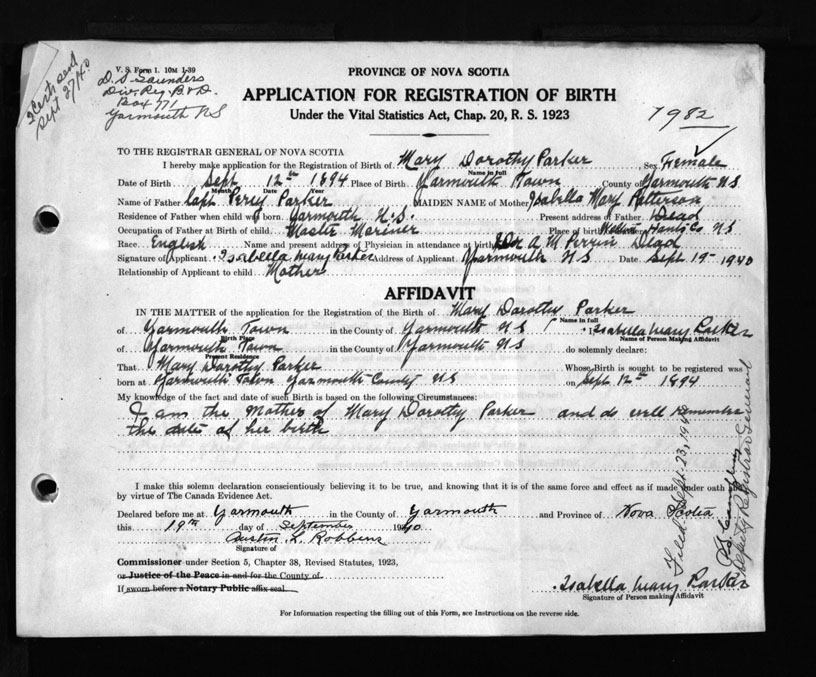 V. S. Form 1. 10M 1-39
D. S. Saunders
Div. Reg. B & D.
Box 771
Yarmouth NS
Sept 27/40
PROVINCE OF NOVA SCOTIA
APPLICATION FOR REGISTRATION OF BIRTH
Under the Vital Statistics Act, Chap. 20, R. S. 1923
7982
TO THE REGISTRAR GENERAL OF NOVA SCOTIA
I hereby make application for the Registration of Birth of Mary Dorothy Parker Sex Female
Name in full
Date of Birth Sept 12th 1894 Place of Birth Yarmouth Town County of Yarmouth N.S
Month Date Year
Name of Father Capt Percy Parker MAIDEN NAME of Mother Isabella Mary Patterson
Residence of Father when child was born. Yarmouth N.S. Present address of Father Dead
Occupation of Father at Birth of child. Master Mariner Place of birth Hants Co NS
Race. English Name and present address of Physician in attendance at birth Dr A. M Perrin Dead
Signature of Applicant Isabella Mary Parker Address of Applicant Yarmouth N S Date Sept 19th 1940
Relationship of Applicant to child Mother
AFFIDAVIT
IN THE MATTER of the application for the Registration of the Birth of Mary Dorothy Parker
Name in full
of Yarmouth Town in the County of Yarmouth N S I Isabella Mary Parker
Birth Place Name of Person Making Affidavit
of Yarmouth Town in the County of Yarmouth N S do solemnly declare:
Present Residence
That Mary Dorothy Parker Whose Birth is sought to be registered was
born at Yarmouth Town Yarmouth County NS on Sept 12th 1894
My knowledge of the fact and date of such Birth is based on the following Circumstances:
I am the Mother of Mary Dorothy Parker and do well Remember
the date of her birth
I make this solemn declaration conscientiously believing it to be true, and knowing that it is of the same force and effect as if made under oath
by virtue of The Canada Evidence Act.
Declared before me at Yarmouth in the County of Yarmouth and Province of Nova Scotia
this 19th day of September 1940
Austin L. Robbins
Signature of
Commissioner under Section 5, Chapter 38, Revised Statutes, 1923,
or Justice of the Peace in and for the County of
If sworn before a Notary Public affix seal
Isabella Mary Parker
Signature of Person making Affidavit
Filed Sept. 23, 194
Deputy Registrar General
For Information respecting the filling out of this Form, see Instructions on the reverse side.